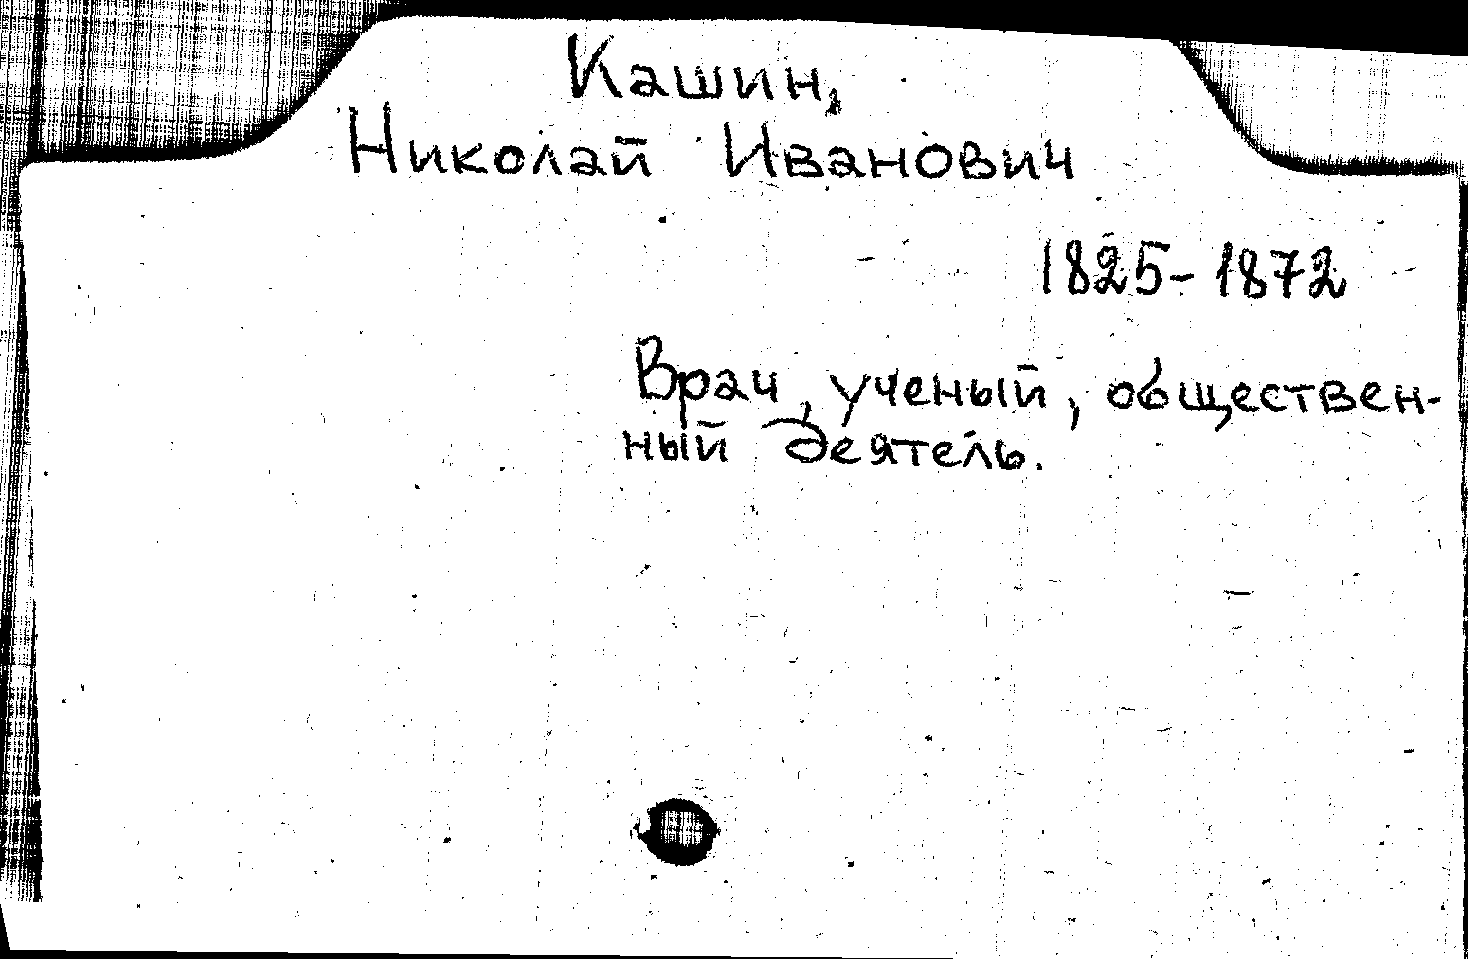 Кашин,
Николай Иванович
1825-1872
Врач, ученый, обществен-
ный деятель.